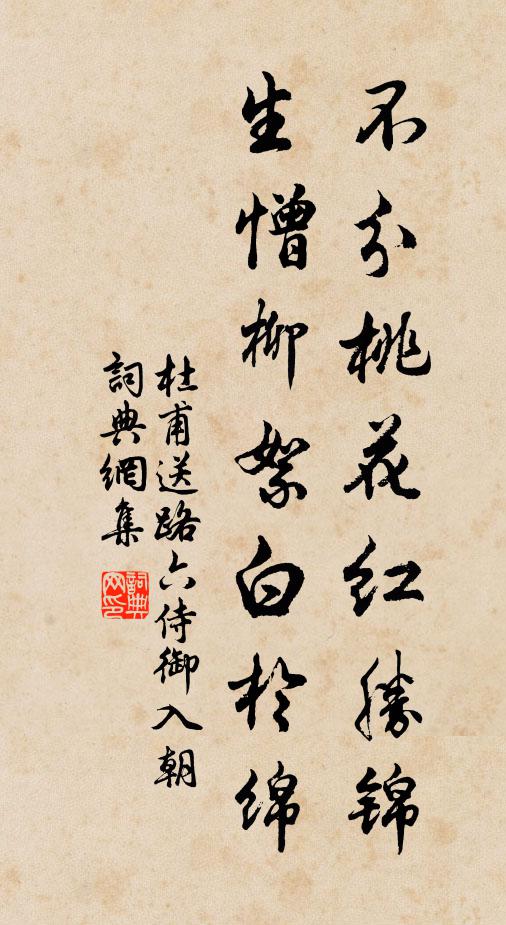 不分桃花红勝锦
生憎柳絮白於绵
杜甫送路六侍御入朝
詞典網集
詞典网印